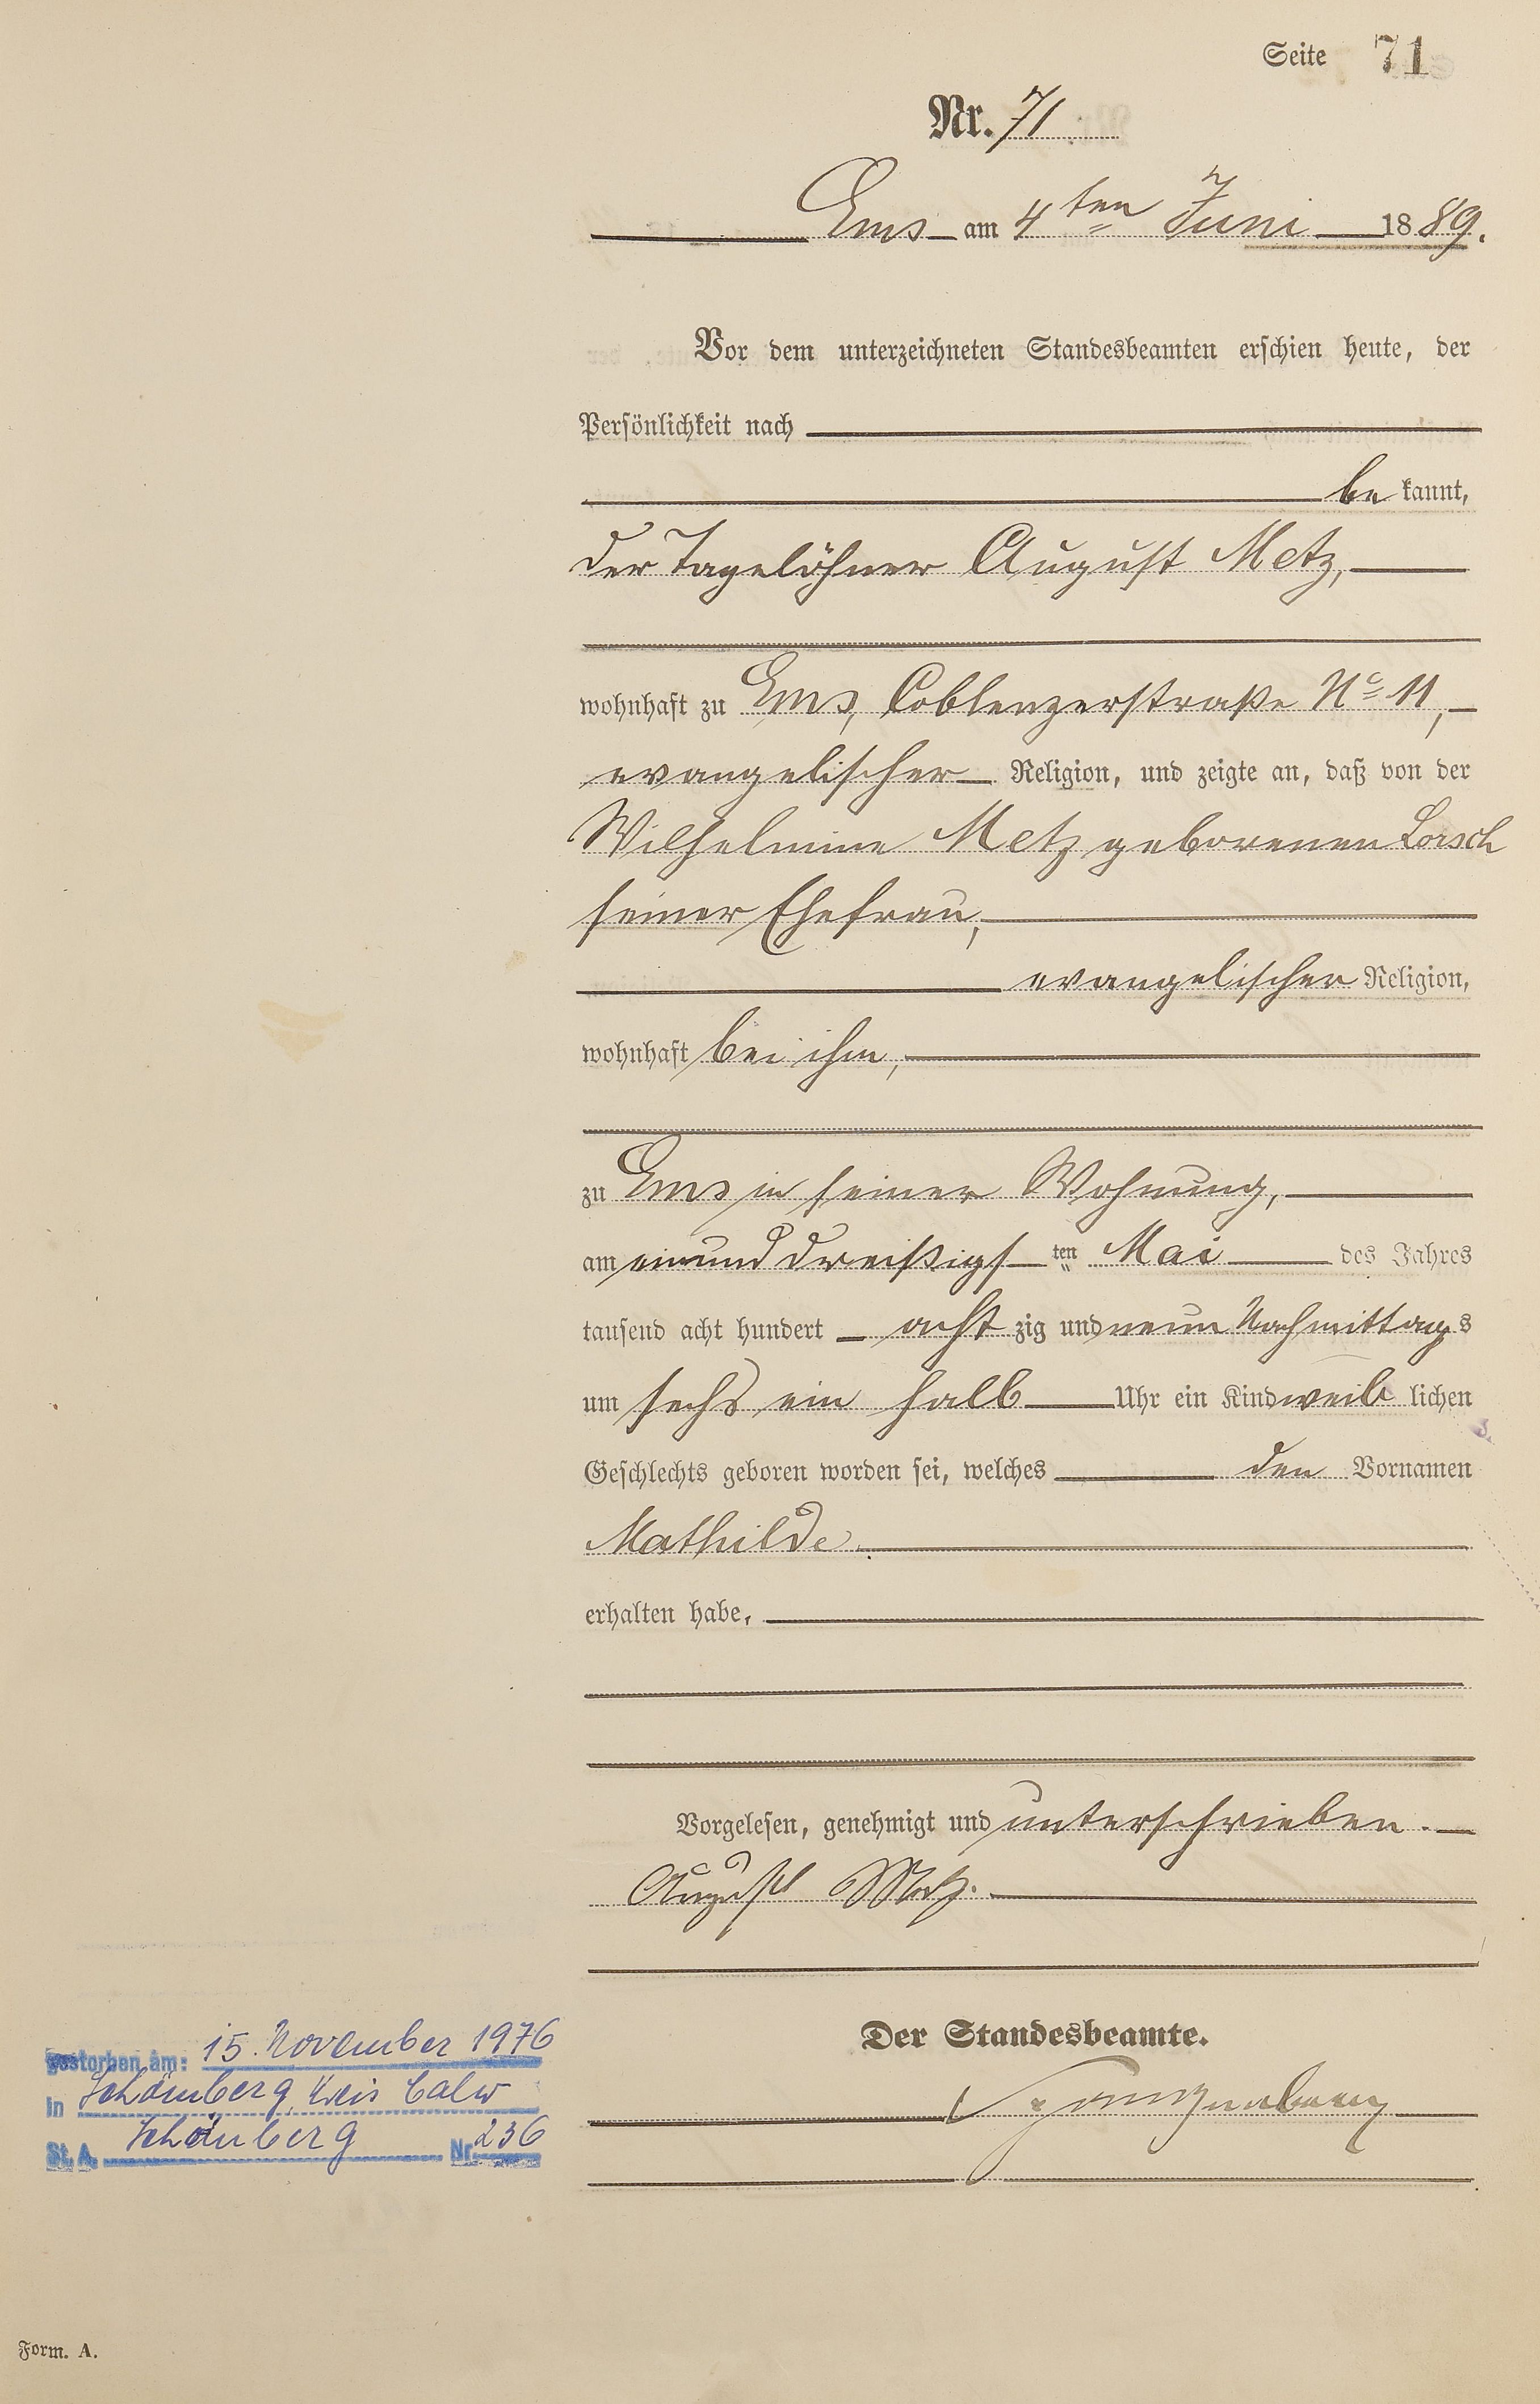 Seite 71
Nr. 71
Ems am 4ten Juni 1889.
Vor dem unterzeichneten Standesbeamten erschien heute, der
Persönlichkeit nach
be kannt,
der Tagelöhner August Metz,
wohnhaft zu Ems, Coblenzerstraße No 11,
evangelischer Religion, und zeigte an, daß von der
Wilhelmine Metz geborenen Lorsch
seiner Ehefrau,
evangelischer Religion,
wohnhaft bei ihm,
zu Ems in seiner Wohnung,
am einund dreißigsten Mai des Jahres
tausend acht hundert acht zig und neun Nachmittags
um sechs ein halb Uhr ein Kind weib lichen
Geschlechts geboren worden sei, welches den Vornamen
Mathilde.
erhalten habe,
Vorgelesen, genehmigt und unterschrieben.
August Metz.
Der Standesbeamte.
gestorben am: 15. November 1976
in Schömberg, Kreis Calw
St. A. Schömberg Nr. 236
Form. A.